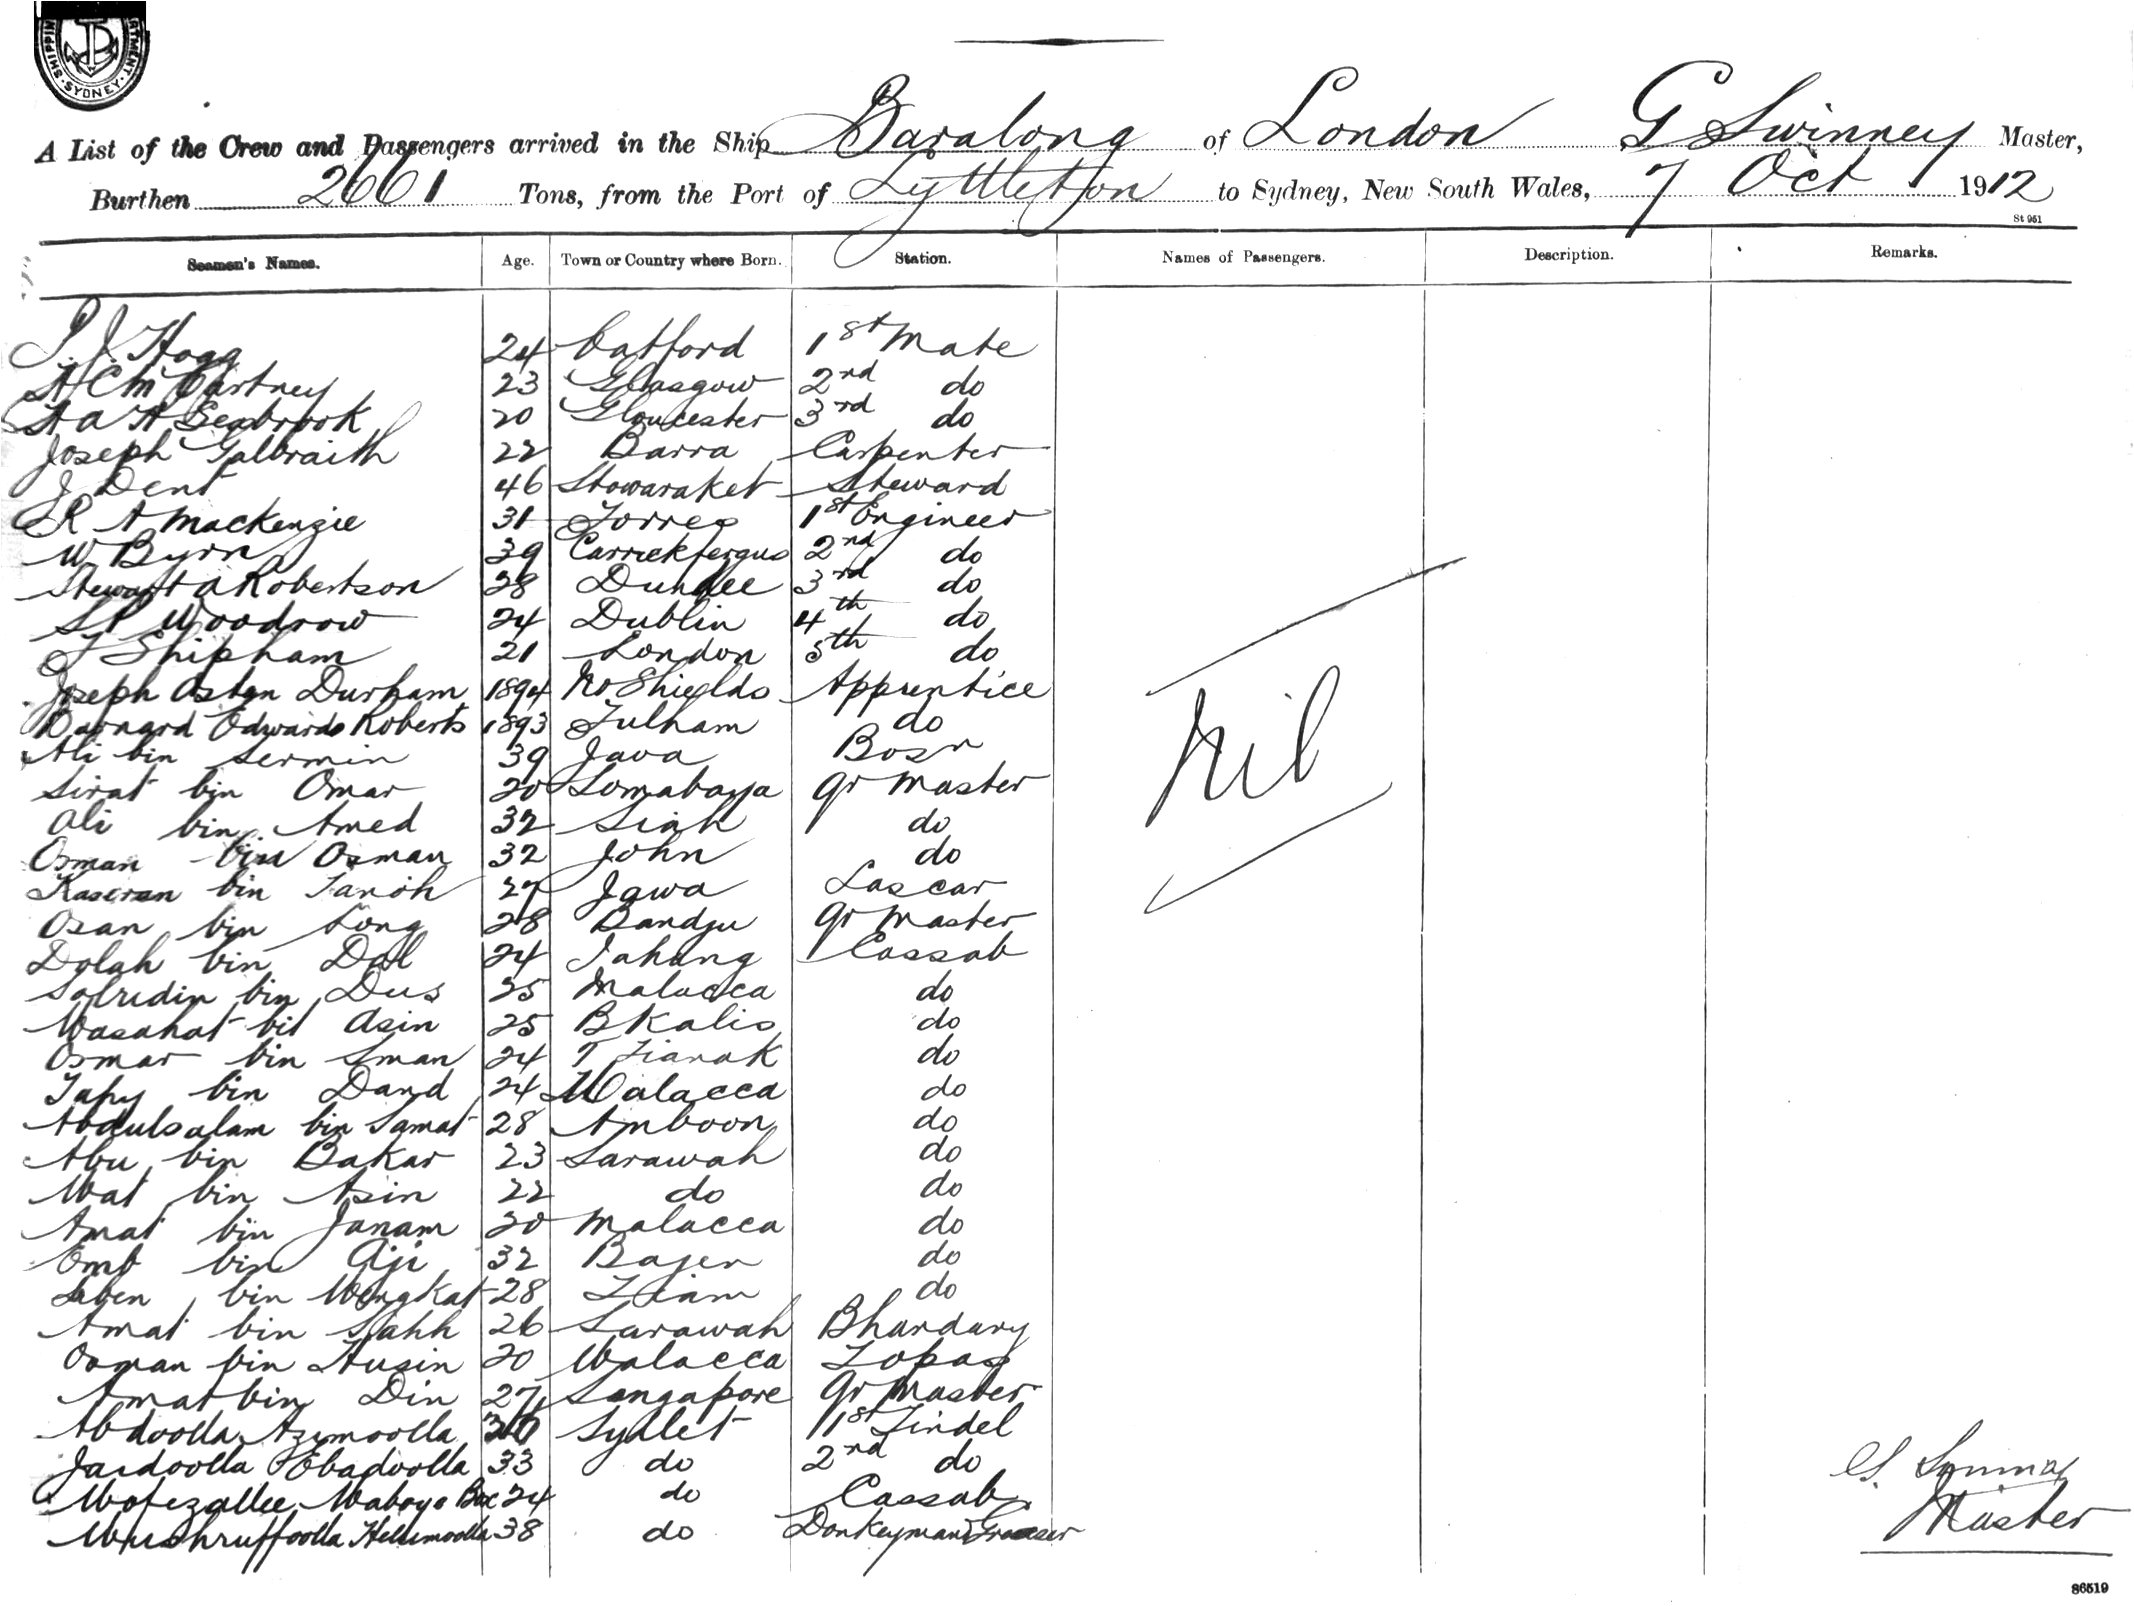 SHIPPIN TMENT. SYDNEY
A List of the Crew and Passengers arrived in the Ship Baralong of London G Swinney Master,
Burthen 2661 Tons, from the Port of Lyttleton to Sydney, New South Wales, 7 Oct 1912
St 951
Seamen's Names. Age. Town or Country where Born. Station. Names of Passengers. Description. Remarks.
P. J. Hogg 24 Catford 1st Mate
A C McCartney 23 Glasgow 2nd do
A A H Seabrook 20 Gloucester 3rd do
Joseph Galbraith 22 Barra Carpenter
J Dent 46 Stowaraket Steward
R A Mackenzie 31 Forres 1st Engineer
W Byrn 39 Carrickfergus 2nd do
Stewart A Robertson 28 Dundee 3rd do
S P Woodrow 24 Dublin 4th do
T Shipham 21 London 5th do
Joseph Asten Durham 1894 No Shields Apprentice
Barnard Edwards Roberts 1893 Fulham do
Ali bin Sermin 39 Java Bosn
Sirat bin Omar 20 Somabaya Qr Master
Ali bin Amed 32 Siak do
Osman bin Osman 32 John do
Kaseran bin Tanoh 27 Jawa Lascar
Osan bin Long 28 Bandju Qr Master
Dolah bin Dol 24 Pahang Cassab
Salridin bin Dus 25 Malacca do
Masahat bit Asin 25 B Kalis do
Osmar bin Sman 24 T Tianak do
Tapy bin Daud 24 Malacca do
Abdulsalam bin Samat 28 Amboon do
Abu bin Bakar 23 Sarawah do
Mat bin Asin 22 do do
Amat bin Janam 20 Malacca do
Omb bin Aji 32 Bajen do
Leben bin Mengkat 28 Tiam do
Amat bin Sahh 26 Sarawah Bhandary
Osman bin Husin 20 Malacca Topas
Amat bin Din 27 Sengapore Qr Master
Abdoolla Azimoolla 36 Syllet 1st Tindel
Jaidoolla Obadoolla 33 do 2nd do
Mofezallee Maboyo Box 24 do Cassab
Mushruffoolla Hellimoolla 38 do Donkeyman & Greaser
Nil
G. Swinney
Master
86519